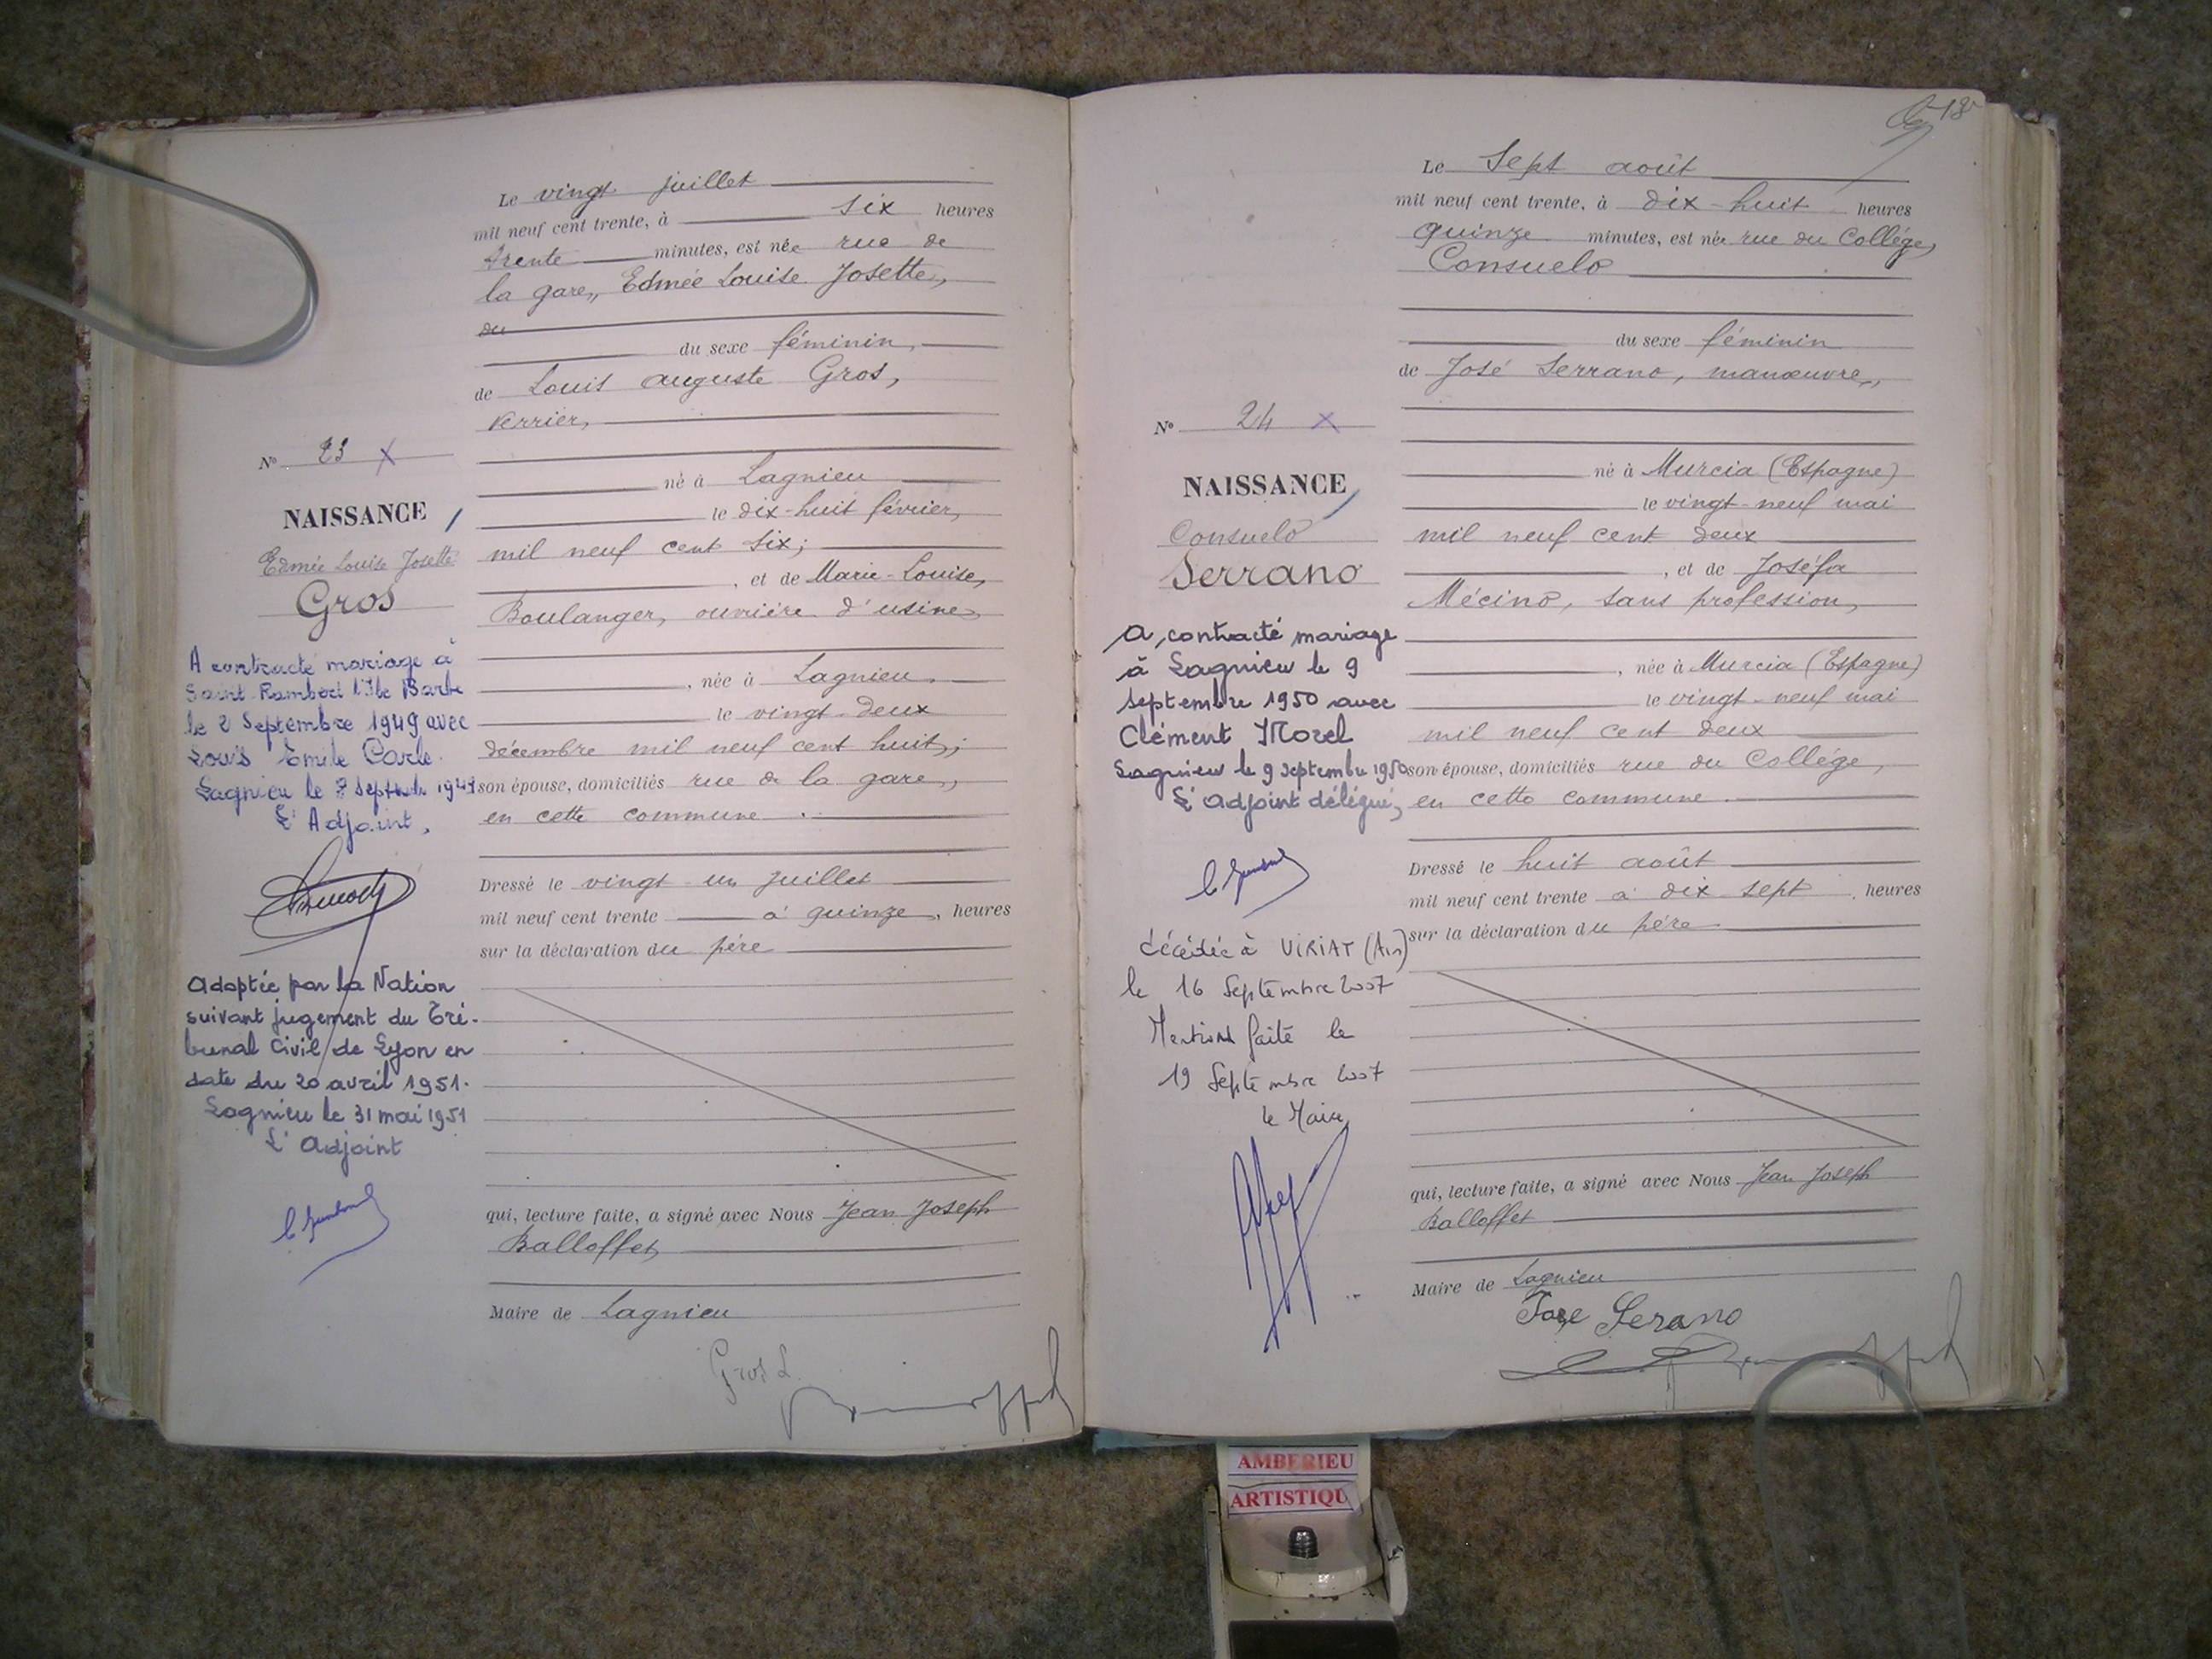 Le vingt juillet
mil neuf cent trente, à six heures
trente minutes, est née rue de
la gare, Edmée Louise Josette,
du
du sexe féminin,
de Louis auguste Gros,
verrier,
né à Lagnieu
le dix-huit février,
mil neuf cent six;
, et de Marie-Louise,
Boulanger, ouvrière d'usine,
, née à Lagnieu,
le vingt-deux
décembre mil neuf cent huit;
son épouse, domiciliés rue de la gare,
en cette commune.
Dressé le vingt-un juillet
mil neuf cent trente à quinze, heures
sur la déclaration du père
qui, lecture faite, a signé avec Nous Jean Joseph
Balloffet,
Maire de Lagnieu
Gros L.
N° 23 X
NAISSANCE
Edmée Louise Josette
Gros
A contracté mariage à
Saint-Rambert l'Ile Barbe
le 2 Septembre 1949 avec
Louis Emile Carle.
Lagnieu le 7 Septembre 1949
L'Adjoint,
Adoptée par la Nation
suivant jugement du Tri-
bunal Civil de Lyon en
date du 20 avril 1951.
Lagnieu le 31 mai 1951
L'Adjoint
18
Le Sept août
mil neuf cent trente, à dix-huit heures
quinze minutes, est née rue du Collège,
Consuelo
du sexe féminin
de José Serrano, manœuvre,
né à Murcia (Espagne)
le vingt-neuf mai
mil neuf cent deux
, et de Joséfa
Mécino, sans profession,
, née à Murcia (Espagne)
le vingt-neuf mai
mil neuf cent deux
son épouse, domiciliés rue du Collège,
en cette commune.
Dressé le huit août
mil neuf cent trente à dix sept, heures
sur la déclaration du père
qui, lecture faite, a signé avec Nous Jean Joseph
Balloffet
Maire de Lagnieu
Jose Serano
N° 24 X
NAISSANCE
Consuelo
Serrano
A contracté mariage
à Lagnieu le 9
septembre 1950 avec
Clément Morel
Lagnieu le 9 septembre 1950
L'adjoint délégué,
décédée à VIRIAT (Ain)
le 16 Septembre 2007
Mention faite le
19 Septembre 2007
le Maire
AMBERIEU
ARTISTIQU